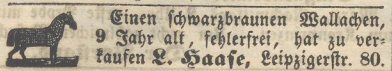 Einen schwarzbraunen Wallachen,
9 Jahr alt, fehlerfrei, hat zu ver-
kaufen L. Haase, Leipzigerstr. 80.